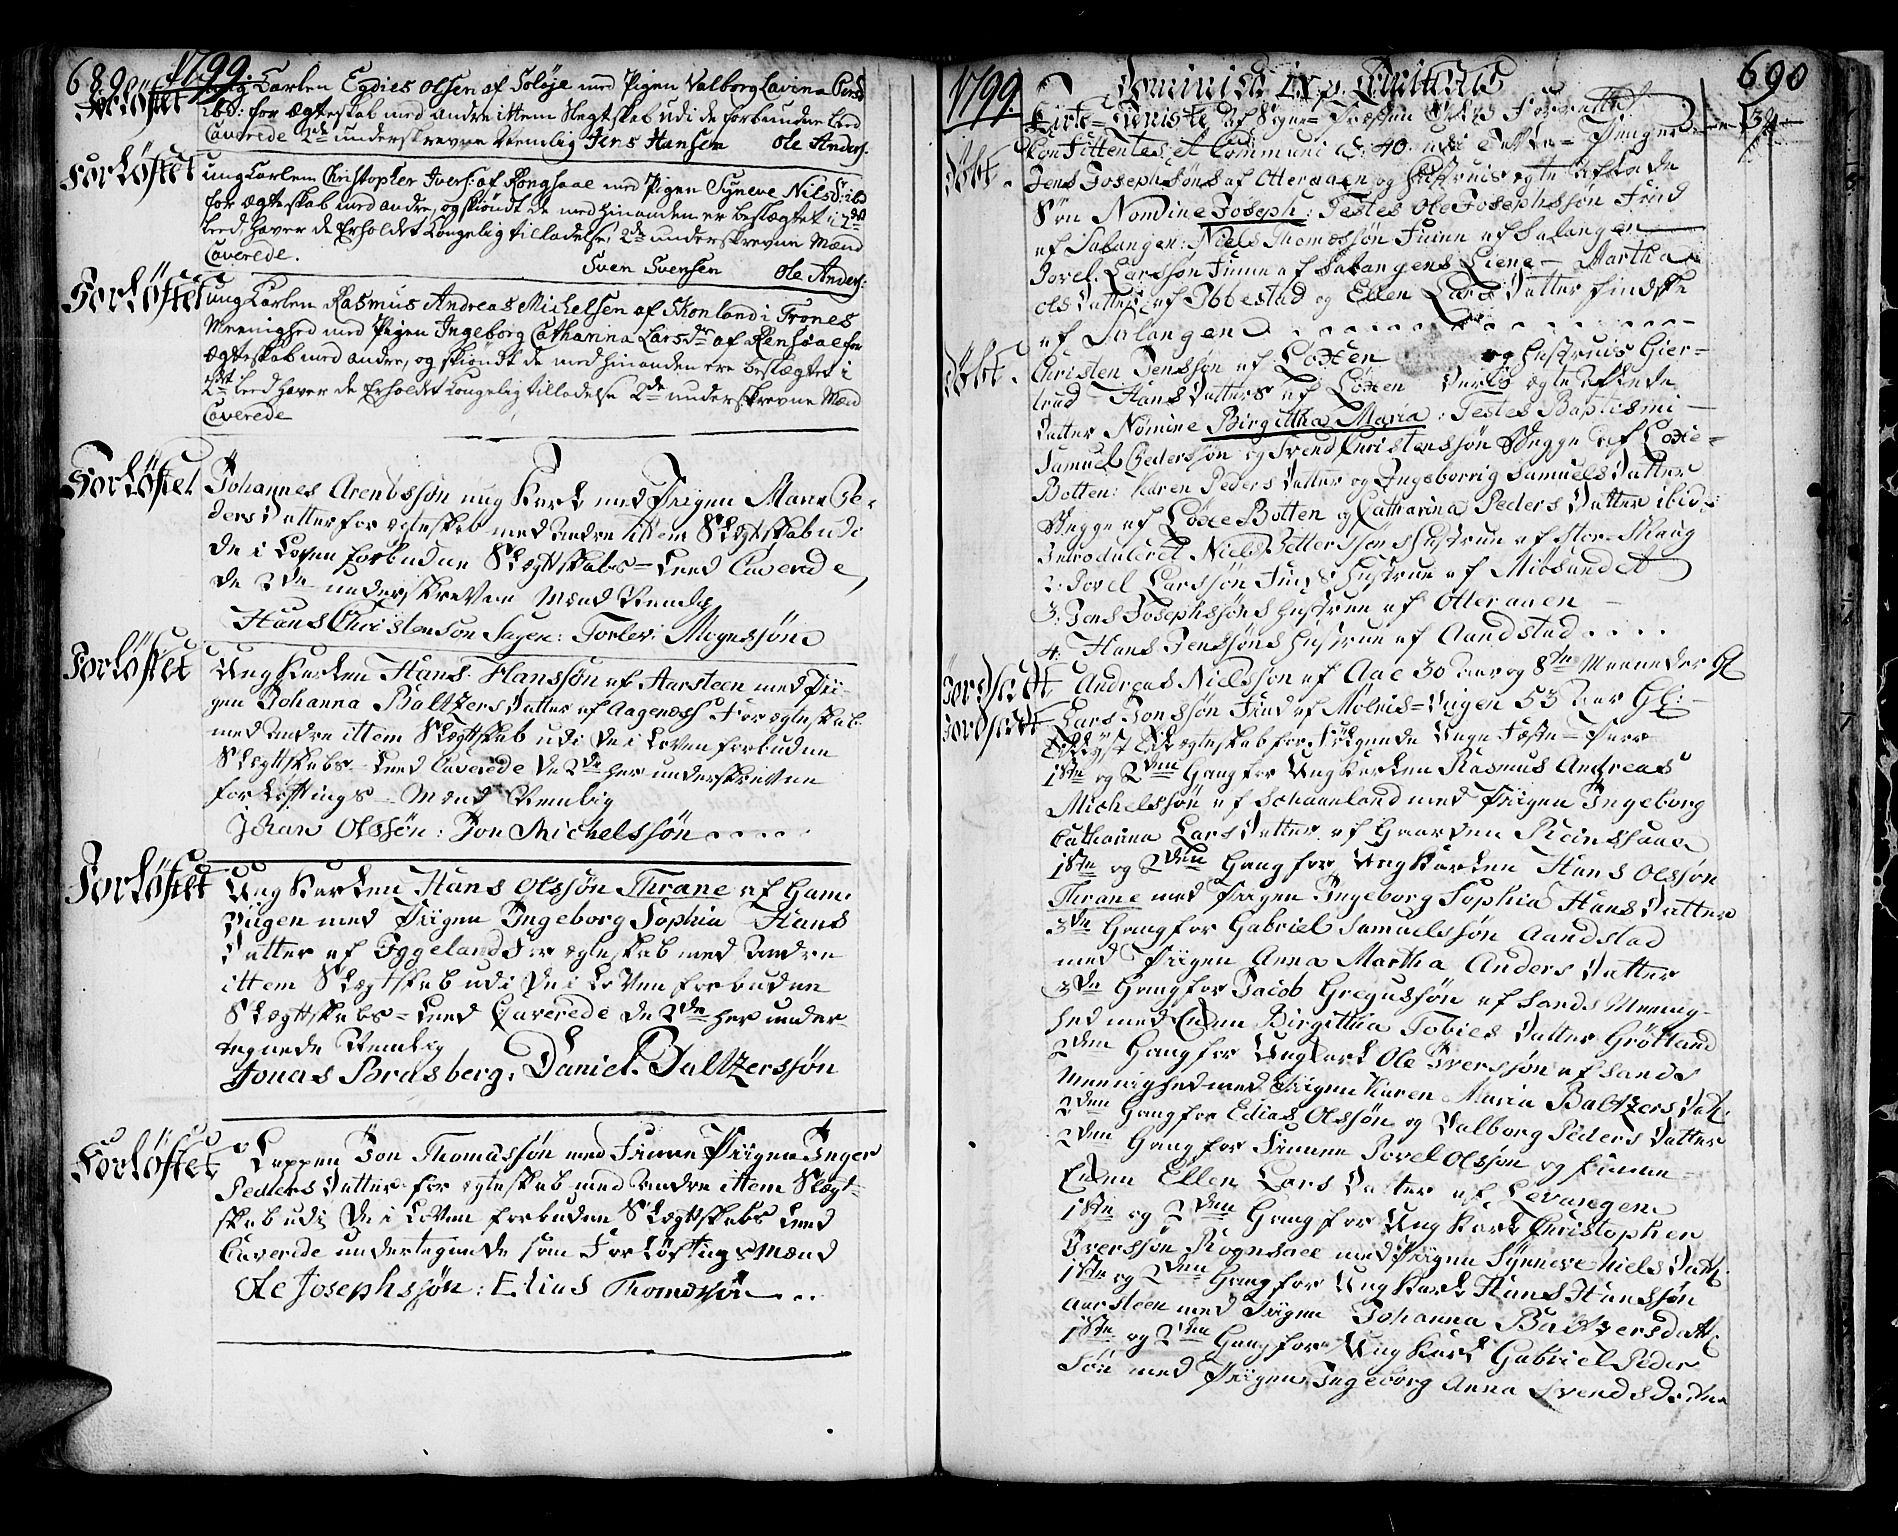 689 1799
Forløftet ung Carlen Egdies Olsen af Foløje med Pigen Valborg Lavina Peds
ibd: for ægteskab med andre ittem Slegtskab udi de forbundne Leed
Caverede 2de underskrevne Nemlig Jens Hansen Ole Anders:
Forløftet ung Carlem Christopher Ivers: af Rongsaae med Pigen Syneve Nilsd: ibd
for ægteskab med andre, og skiøndt de med hinanden er beslægtet i 2det
Leed, haver de Erholdet Kongelig tilladelse, 2de underskrevne Mænd
Caverede. Sven Svensen Ole Anders:
Forløftet ung Carlen Rasmus Andreas Michelsen af Skonland i Trones
Meenighed med Pigen Ingeborg Catharina Larsdr af Rensaae for
Ægteskab med andre, og skiøndt de med hinanden ere beslægtet i
2det Leed haver de Erholdet Kongelig tilladelse 2de underskrevne Mænd
Caverede
Forløftet Johannes Arentssøn ung Karl med Piigen Maren Pe-
ders Datter for ægteskab med andre ittem Slegtskab udi
de i Loven forbudne Slægtskabs-Leed Caverede,
de 2de underskrevne Mænd Nemlig
Hans Christenson Sagen: Torlev: Mognssøn
Forløftet Ung Karlen Hans Hanssøn af Aarsteen med Pii-
gen Johanna Baltzers Datter af Aagenæss For ægteskab
med andre ittem Slægtskab udi de i Loven forbudne
Slægtskabs-Leed Caverede de 2de her underskrevne
forløftnings-Mænd Nemlig
Johan Olssøn: Jon Michelssøn
Forløftet Ung Karlen Hans Olssøn Thrane af Ham-
Viigen med Piigen Ingeborg Sophia Hans
Datter af Iggeland For ægteskab med andre
ittem Slægtskab udi de i Loven forbudne
Slægtskabs-Leed Caverede de 2de her under-
tegnede Nemlig
Jonas Brasberg. Daniel. Baltzerssøn
Forløftet Lappen Jon Thomassøn med Finne Piigen Inger
Peders Datter for ægteskab med andre ittem Slægt-
skab udi de i Loven forbudne Slægtskabs Leed
Caverede undertegnede som Forløftings Mænd
Ole Josephssøn: Elias Thomassøn
1799. Dominica IX p. Trinitatis 690
Kirke-Tieniste af
Confitentes et Communi: 40
Døbt. Jens Josephsøns af Otteraaen og hustrues ægte Affødde
Søn Nomine Joseph: Testes Ole Josephssøn Find
af Salangen: Niels Thomassøn Finne af Salangen
Povel Larssøn Finne af Salangens Martha
Ols Datter af Ibbestad og Ellen Lars Datter Findske
af Salangen
Døbt. Christen Jenssøn af Løxen og hustrues Gier-
trud Hans Datters af Løxen deres ægte Affødde
Datter Nomine Birgitha Maria: Testes Baptismi
Samuel Pederssøn og Svend Christenssøn Begge af Løxe-
Botten: Karen Peders Datter og Ingeborrig Samuels Datter
Begge af Løxe Botten og Catharina Peders Datter ibid:
Introduceret Niels Petterssøns Hustrue af Stor-Skaug
2. Povel Larssøn Fin's hustrue af Miøsundet
3. Jens Josephssøns hustrue af Otteraaen
4. Hans Jenssøns hustrue af Aandstad
Jordsædt Andreas Nielssøn af Aae 30 aar og 8te Maaneder Gl
Jordsædt Lars Jonssøn Find af Mølnis-Viigen 53 aar Gl:
Tillyst til ægteskab for følgende Unge Fæste-Parr
1ste og 2den Gang for Ung Karlen Rasmus Andreas
Michelssøn af Schaanland med Piigen Ingeborg
Catharina Lars Datter af Gaarden Reinsaae
1ste og 2den Gang for Ung Karlen Hans Olssøn
Thrane med Piigen Ingeborg Sophia Hans Datter
3de Gang for Gabriel Samuelssøn Aandstad
med Piigen Anna Martha Anders Datter
3de Gang for Jacob Gregussøn af Sands Menig-
hed med Enken Birgithia Tobies Datter Grøtland
2den Gang for Ung Karl Ole Iverssøn af Sands
Menighed med Piigen Karen Maria Baltzers Datt.
2den Gang for Edias Olssøn og Valborg Peders Datter
2den Gang for Finnen Povel Olssøn og Finne-
Enken Ellen Lars Datter af Levangen
1ste og 2den Gang for Ung Karl Christopher
Iverssøn Rognsaae med Piigen Synneve Niels Datt.
1ste og 2den Gang for Ung Karl Hans Hanssøn
Aarsteen med Piigen Johanna Baltzersdatt:
1ste og 2den Gang for Ung Karl Gabriel Peder
Søn med Piigen Ingeborg Anna Svends Datter